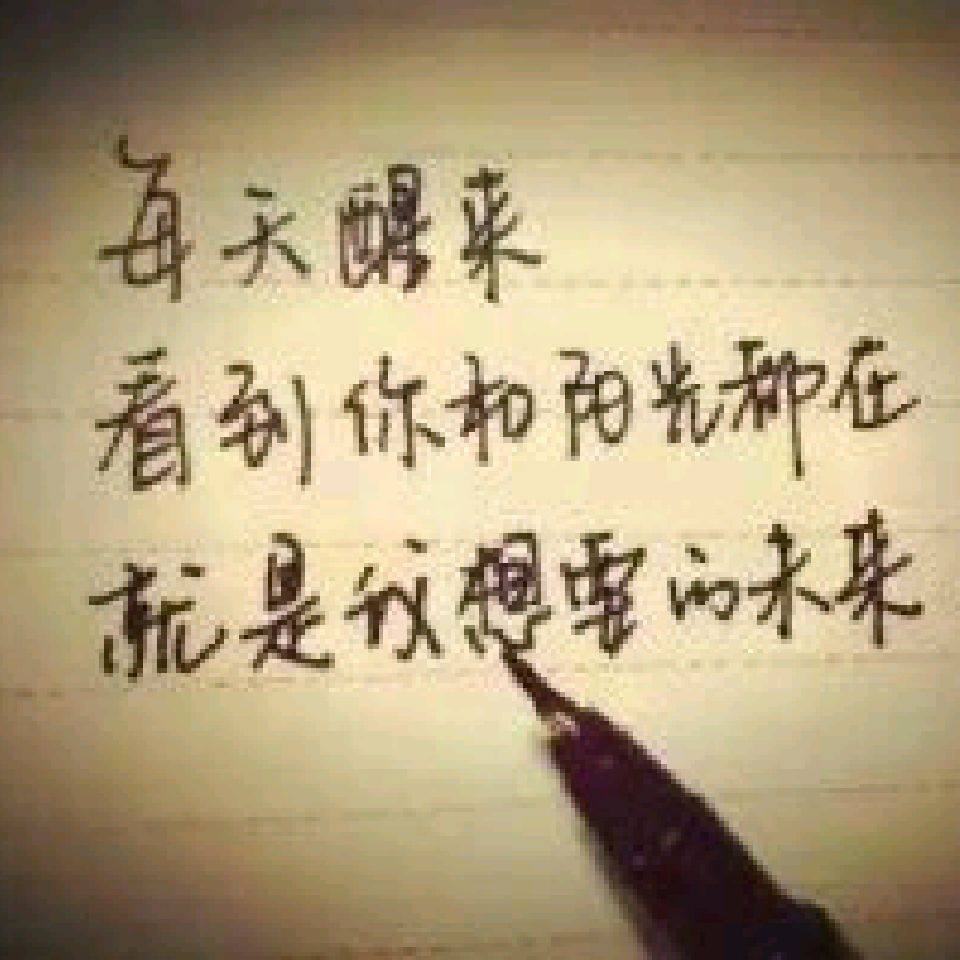 每天醒来
看到你和阳光都在
就是我想要的未来